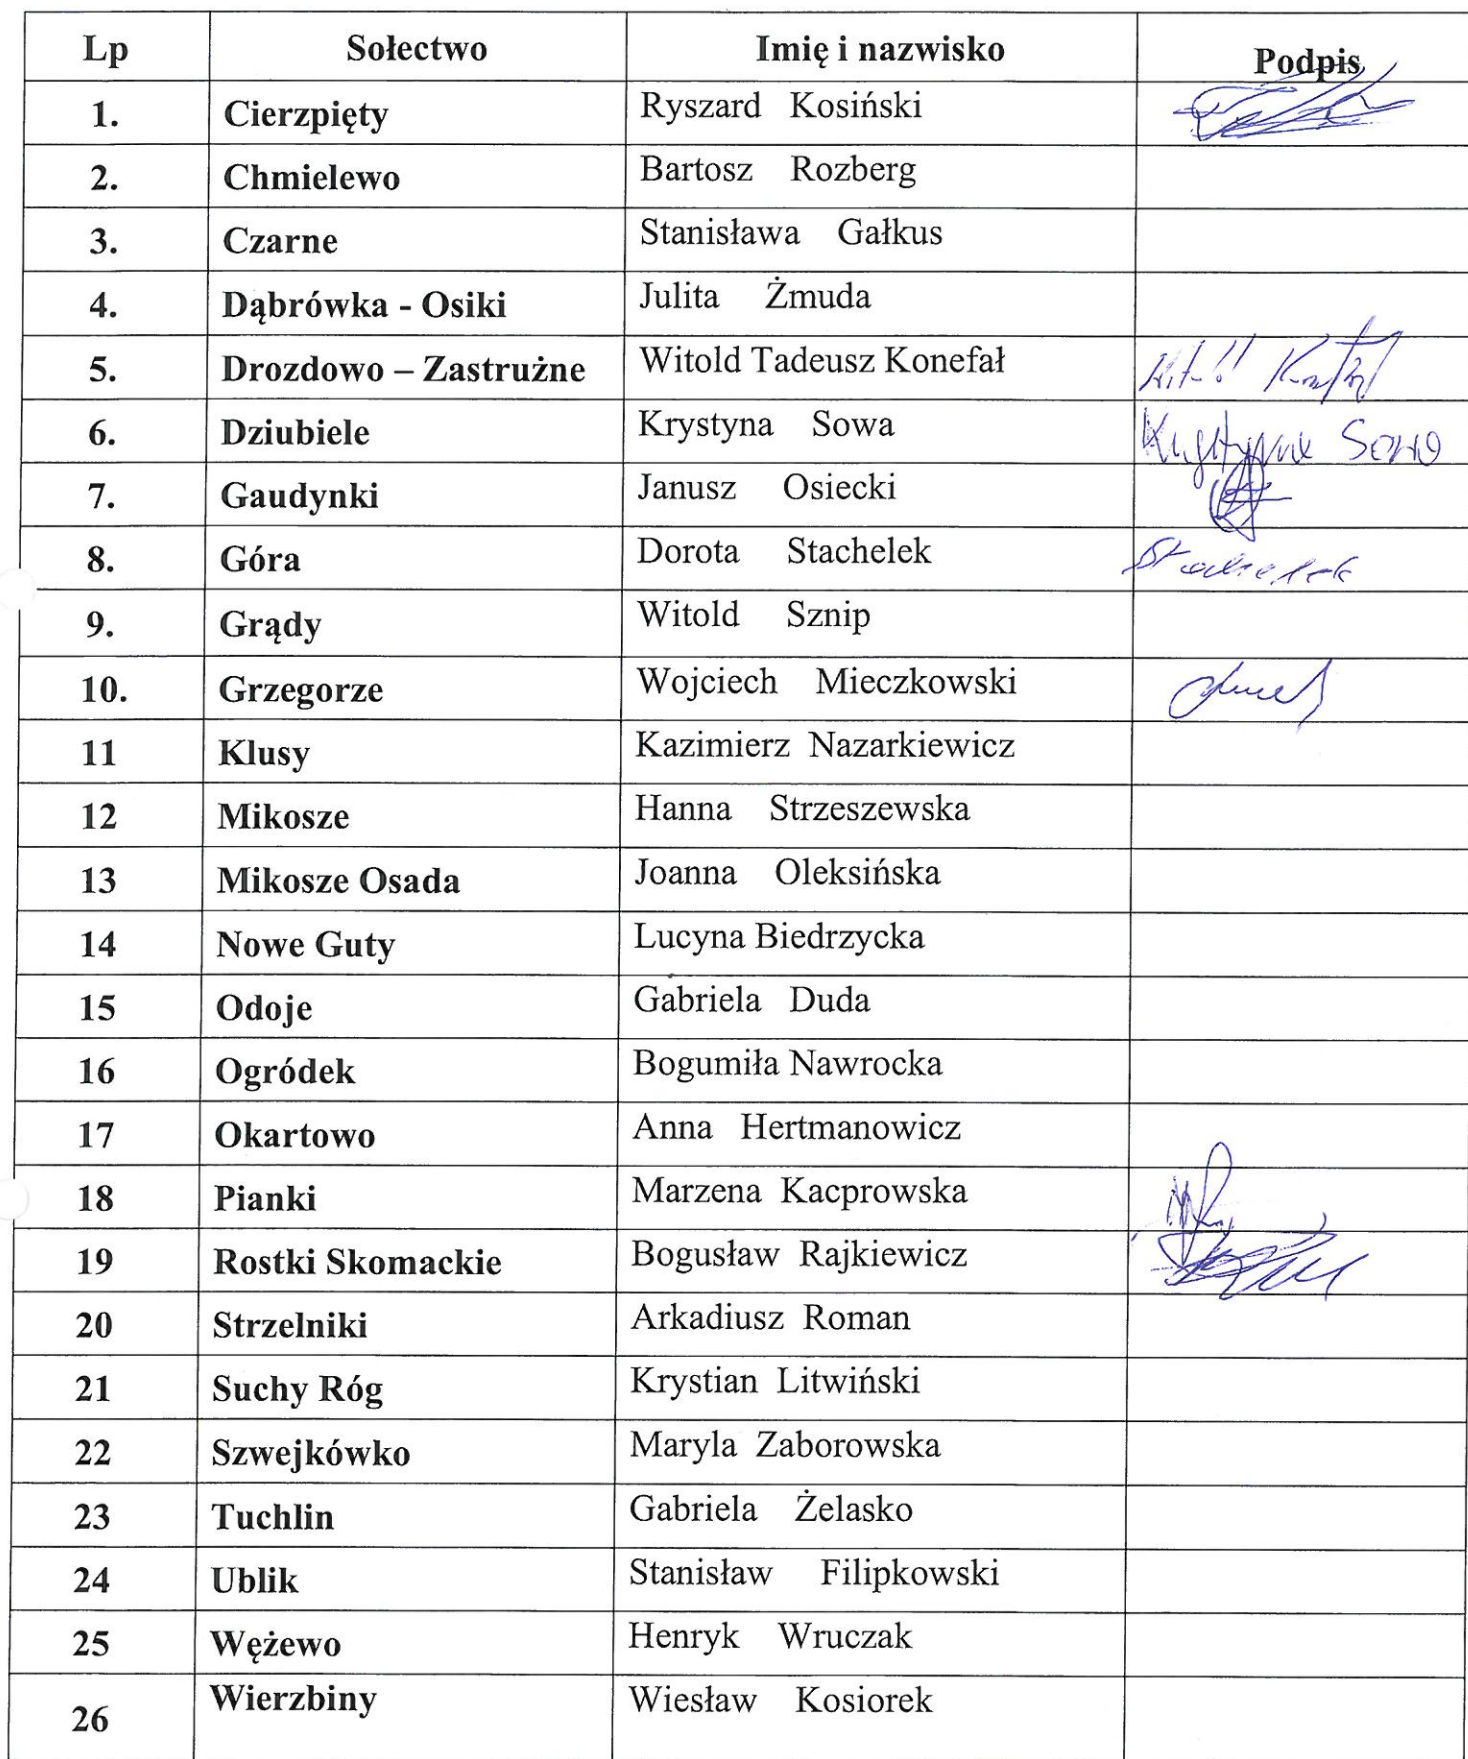 Lp Sołectwo Imię i nazwisko Podpis
1. Cierzpięty Ryszard Kosiński
2. Chmielewo Bartosz Rozberg
3. Czarne Stanisława Gałkus
4. Dąbrówka - Osiki Julita Żmuda
5. Drozdowo – Zastrużne Witold Tadeusz Konefał
6. Dziubiele Krystyna Sowa Krystyna Sowa
7. Gaudynki Janusz Osiecki
8. Góra Dorota Stachelek Stachelek
9. Grądy Witold Sznip
10. Grzegorze Wojciech Mieczkowski
11 Klusy Kazimierz Nazarkiewicz
12 Mikosze Hanna Strzeszewska
13 Mikosze Osada Joanna Oleksińska
14 Nowe Guty Lucyna Biedrzycka
15 Odoje Gabriela Duda
16 Ogródek Bogumiła Nawrocka
17 Okartowo Anna Hertmanowicz
18 Pianki Marzena Kacprowska
19 Rostki Skomackie Bogusław Rajkiewicz
20 Strzelniki Arkadiusz Roman
21 Suchy Róg Krystian Litwiński
22 Szwejkówko Maryla Zaborowska
23 Tuchlin Gabriela Żelasko
24 Ublik Stanisław Filipkowski
25 Wężewo Henryk Wruczak
26 Wierzbiny Wiesław Kosiorek